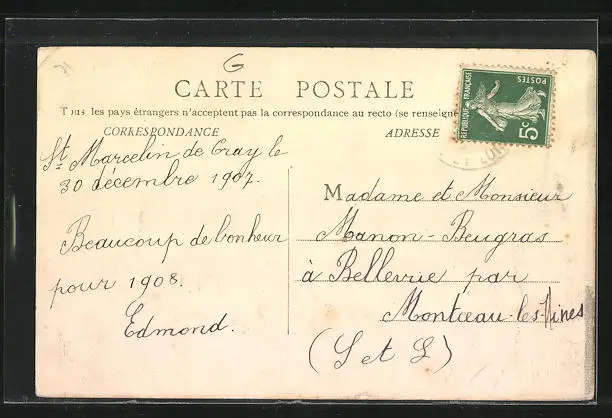 G
CARTE POSTALE
Tous les pays étrangers n'acceptent pas la correspondance au recto (se renseigne
CORRESPONDANCE
ADRESSE
POSTES
RÉPUBLIQUE FRANÇAISE
5c
St Marcelin de Cray le
30 décembre 1907.
Beaucoup de bonheur
pour 1908.
Edmond.
Madame et Monsieur
Manon-Beugras
à Bellevue par
Montceau-les-Mines
(S et L)